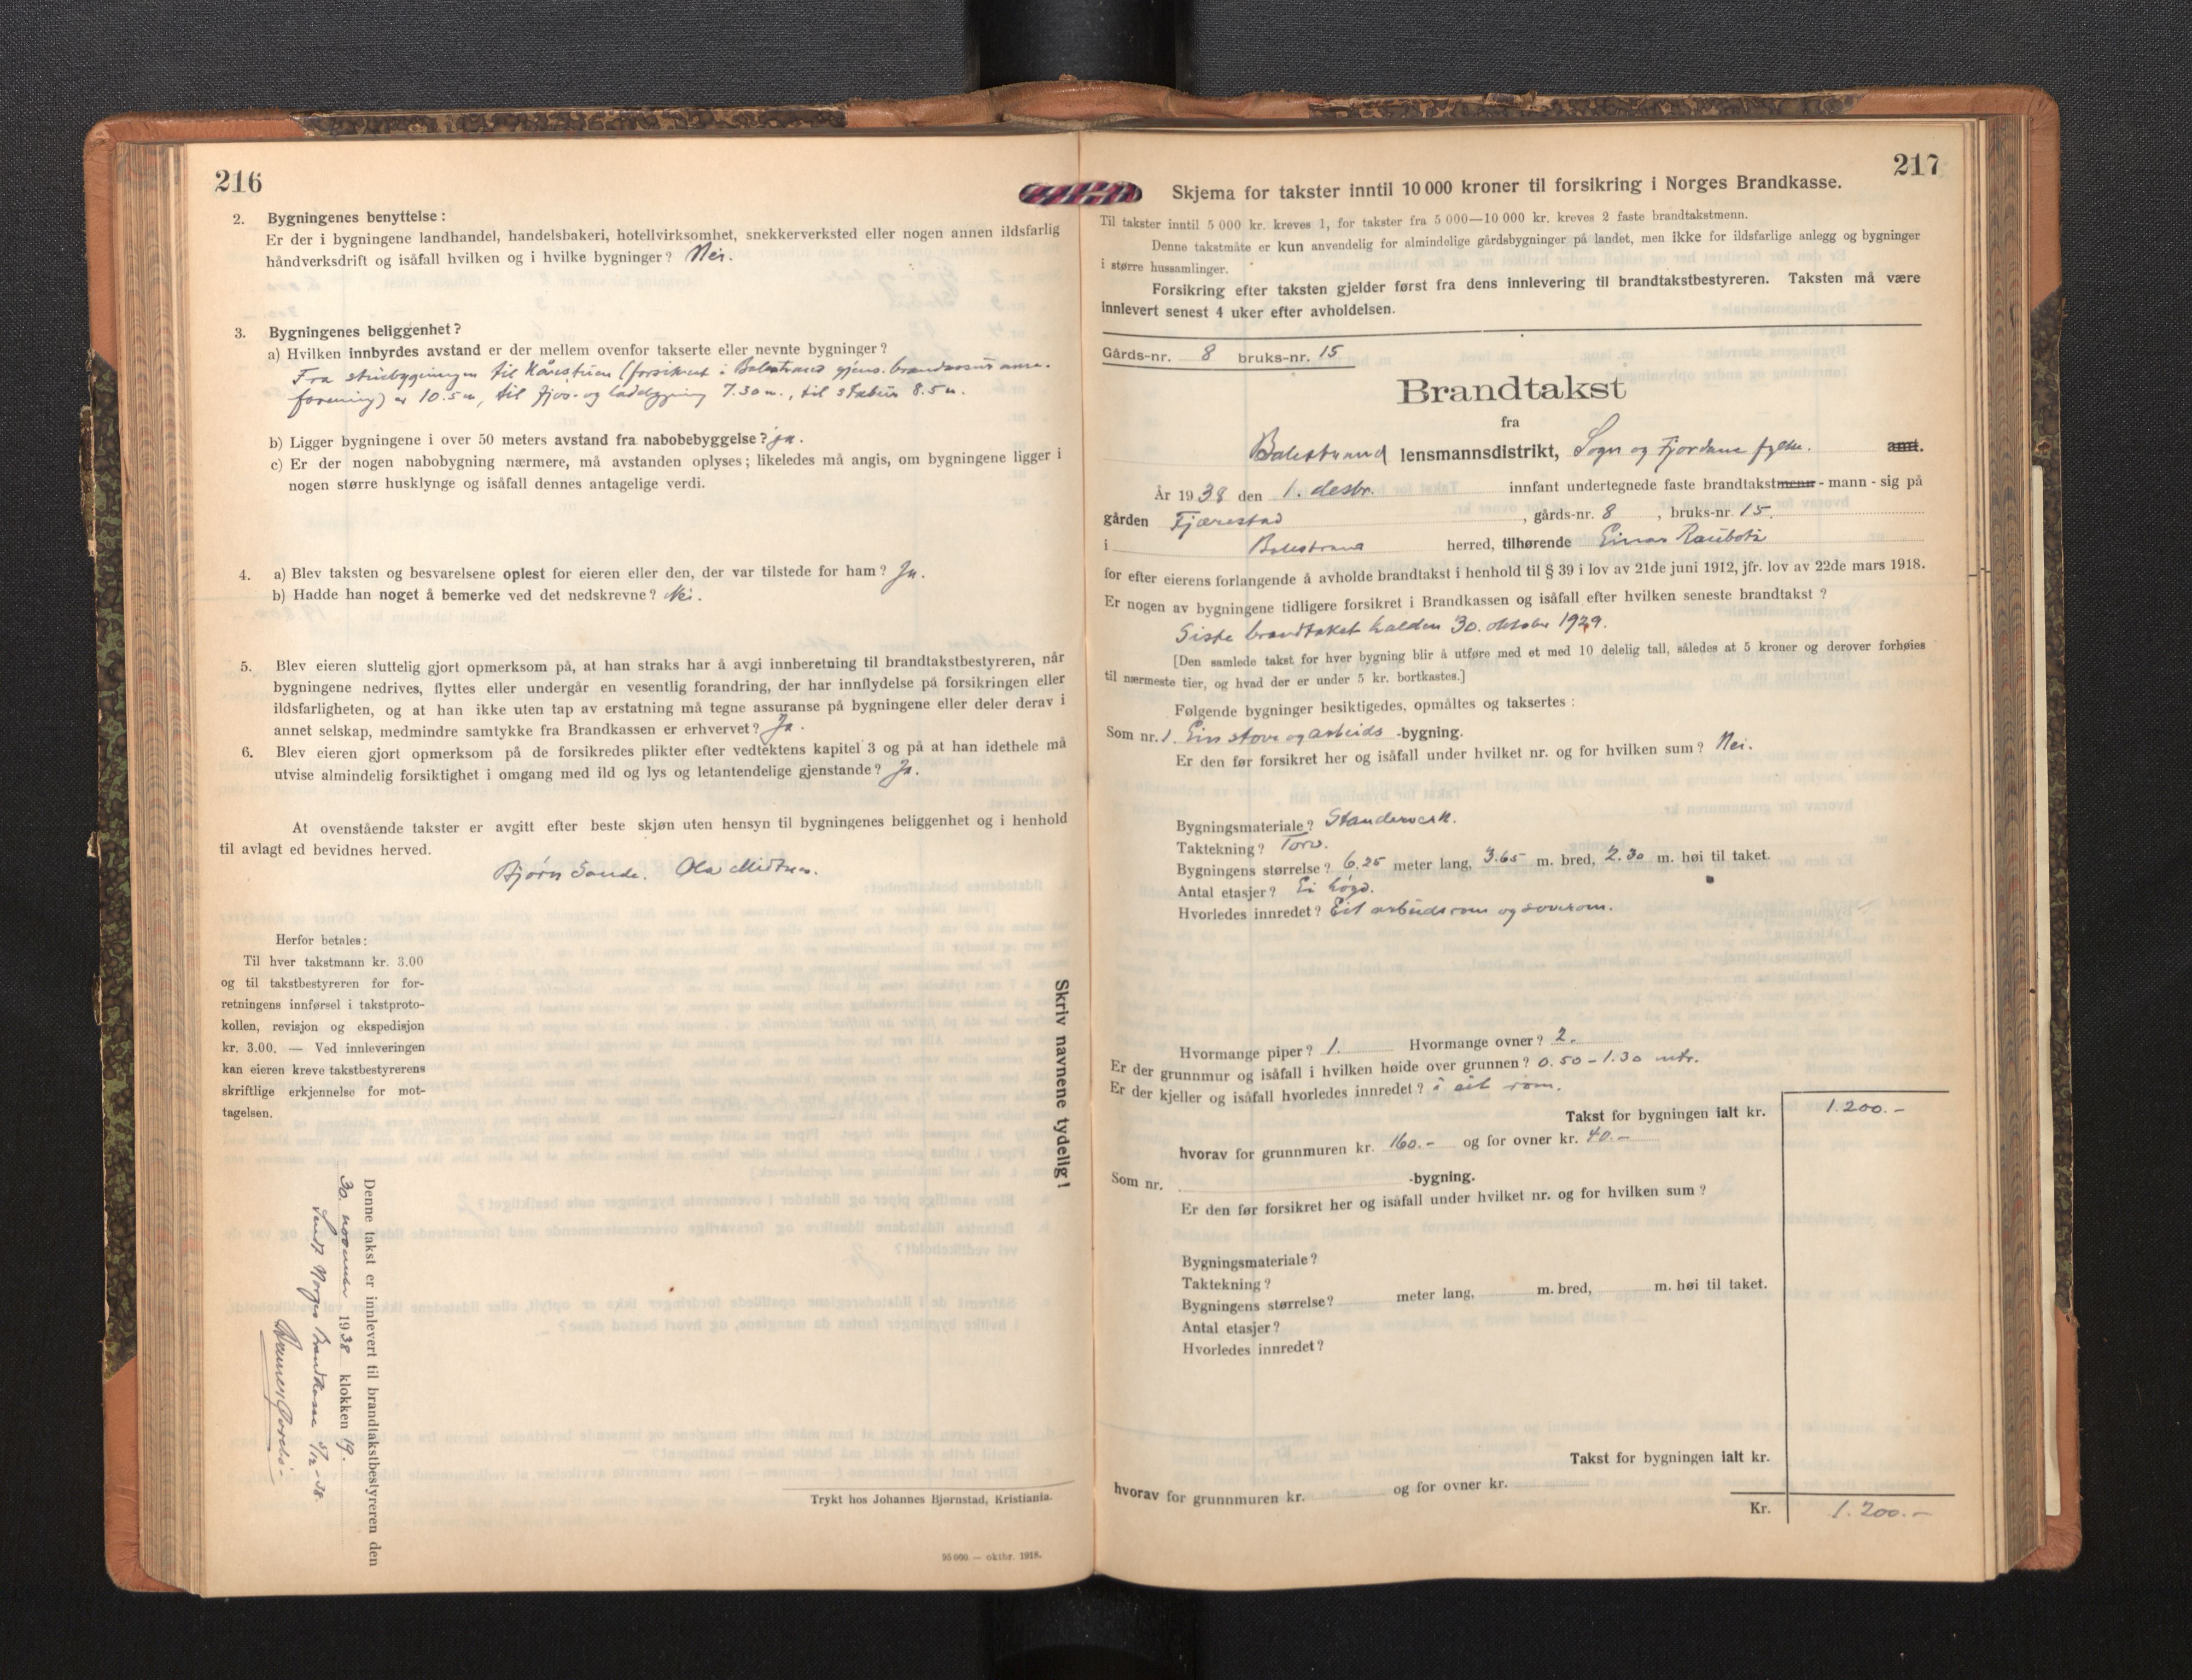 216
2. Bygningenes benyttelse:
Er der i bygningene landhandel, handelsbakeri, hotellvirksomhet, snekkerverksted eller nogen annen ildsfarlig
håndverksdrift og isåfall hvilken og i hvilke bygninger? Nei.
3. Bygningenes beliggenhet?
a) Hvilken innbyrdes avstand er der mellem ovenfor takserte eller nevnte bygninger?
Fra stuebygningen til Kårestuen (forsikret i Balestrand gjens. brandassuranse-
forening) er 10.5 m, til fjos- og ladebygning 7.30 m., til stabur 8.5 m.
b) Ligger bygningene i over 50 meters avstand fra nabobebyggelse? ja.
c) Er der nogen nabobygning nærmere, må avstanden oplyses; likeledes må angis, om bygningene ligger i
nogen større husklynge og isåfall dennes antagelige verdi.
4. a) Blev taksten og besvarelsene oplest for eieren eller den, der var tilstede for ham? Ja.
b) Hadde han noget å bemerke ved det nedskrevne? Nei.
5. Blev eieren sluttelig gjort opmerksom på, at han straks har å avgi innberetning til brandtakstbestyreren, når
bygningene nedrives, flyttes eller undergår en vesentlig forandring, der har innflydelse på forsikringen eller
ildsfarligheten, og at han ikke uten tap av erstatning må tegne assuranse på bygningene eller deler derav i
annet selskap, medmindre samtykke fra Brandkassen er erhvervet? Ja.
6. Blev eieren gjort opmerksom på de forsikredes plikter efter vedtektens kapitel 3 og på at han idethele må
utvise almindelig forsiktighet i omgang med ild og lys og letantendelige gjenstande? Ja.
At ovenstående takster er avgitt efter beste skjøn uten hensyn til bygningenes beliggenhet og i henhold
til avlagt ed bevidnes herved.
Bjørn Sande. Ola Midtnes.
Herfor betales:
Til hver takstmann kr. 3.00
og til takstbestyreren for for-
retningens innførsel i takstproto-
kollen, revisjon og ekspedisjon
kr. 3.00. — Ved innleveringen
kan eieren kreve takstbestyrerens
skriftlige erkjennelse for mot-
tagelsen.
Skriv navnene tydelig!
Denne takst er innlevert til brandtakstbestyreren den
30. november 1938 klokken 19.
Sendt Norges Brandkasse 5/12-38.
Trykt hos Johannes Bjørnstad, Kristiania.
95 000 — oktbr. 1918.
217
Skjema for takster inntil 10 000 kroner til forsikring i Norges Brandkasse.
Til takster inntil 5 000 kr. kreves 1, for takster fra 5 000—10 000 kr. kreves 2 faste brandtakstmenn.
Denne takstmåte er kun anvendelig for almindelige gårdsbygninger på landet, men ikke for ildsfarlige anlegg og bygninger
i større hussamlinger.
Forsikring efter taksten gjelder først fra dens innlevering til brandtakstbestyreren. Taksten må være
innlevert senest 4 uker efter avholdelsen.
Gårds-nr. 8 bruks-nr. 15
Brandtakst
fra
Balestrand lensmannsdistrikt, Sogn og Fjordane fylke. amt.
År 1938 den 1. desbr. innfant undertegnede faste brandtakstmenn - mann - sig på
gården Fjærestad, gårds-nr. 8, bruks-nr. 15.
i Balestrand herred, tilhørende Einar Raubotn
for efter eierens forlangende å avholde brandtakst i henhold til § 39 i lov av 21de juni 1912, jfr. lov av 22de mars 1918.
Er nogen av bygningene tidligere forsikret i Brandkassen og isåfall efter hvilken seneste brandtakst?
Siste brandtakst halden 30. oktober 1929.
[Den samlede takst for hver bygning blir å utføre med et med 10 delelig tall, således at 5 kroner og derover forhøies
til nærmeste tier, og hvad der er under 5 kr. bortkastes.]
Følgende bygninger besiktigedes, opmåltes og taksertes:
Som nr. 1. Ein stove og arbeids -bygning.
Er den før forsikret her og isåfall under hvilket nr. og for hvilken sum? Nei.
Bygningsmateriale? Standerverk.
Taktekning? Torv.
Bygningens størrelse? 6.25 meter lang, 3.65 m. bred, 2.30 m. høi til taket.
Antal etasjer? Ei høgd.
Hvorledes innredet? Eit arbeidsrom og soverom.
Hvormange piper? 1. Hvormange ovner? 2.
Er der grunnmur og isåfall i hvilken høide over grunnen? 0.50 - 1.30 mtr.
Er der kjeller og isåfall hvorledes innredet? i eit rom.
Takst for bygningen ialt kr. 1.200.-
hvorav for grunnmuren kr. 160.- og for ovner kr. 40.-
Som nr. -bygning.
Er den før forsikret her og isåfall under hvilket nr. og for hvilken sum?
Bygningsmateriale?
Taktekning?
Bygningens størrelse? meter lang, m. bred, m. høi til taket.
Antal etasjer?
Hvorledes innredet?
Takst for bygningen ialt kr.
hvorav for grunnmuren kr. og for ovner kr.
Kr. 1.200.-